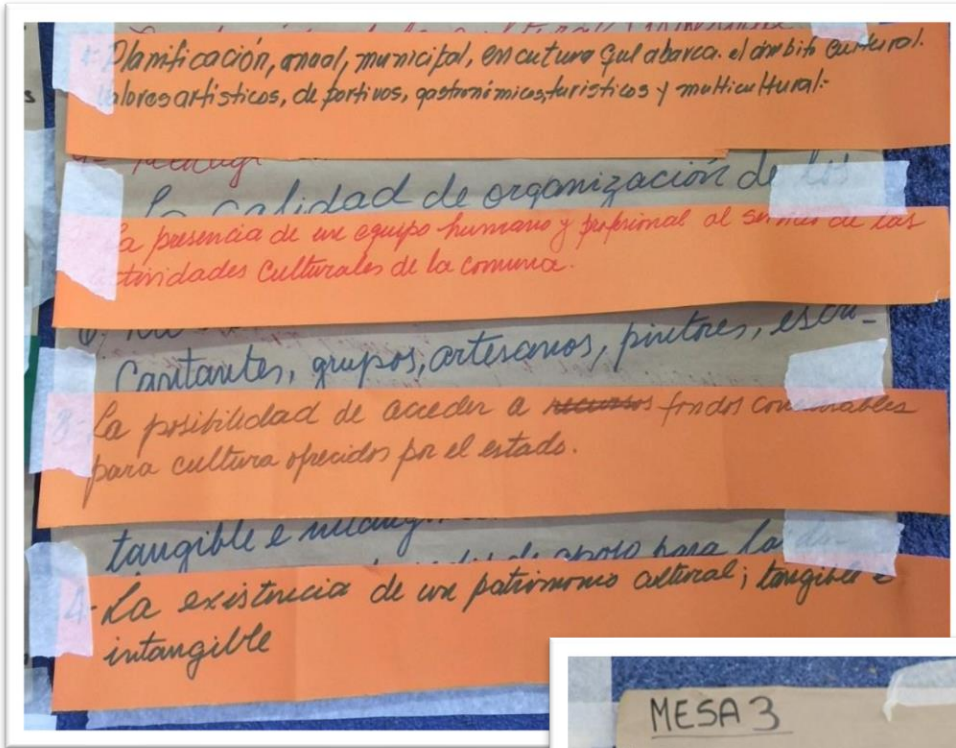 Planificación, anual, municipal, en cultura qul abarca. el ámbito cultural.
valores artísticos, deportivos, gastronómicos, turísticos y multicultural:
La calidad de organización de los
La presencia de un equipo humano y profesional al servicio de las
actividades culturales de la comuna.
Cantantes, grupos, artesanos, pintores,
3- La posibilidad de acceder a recursos fondos concursables
para cultura ofrecidos por el estado.
tangible e
de apoyo para la
4- La existencia de un patrimonio cultural; tangible e
intangible
MESA 3